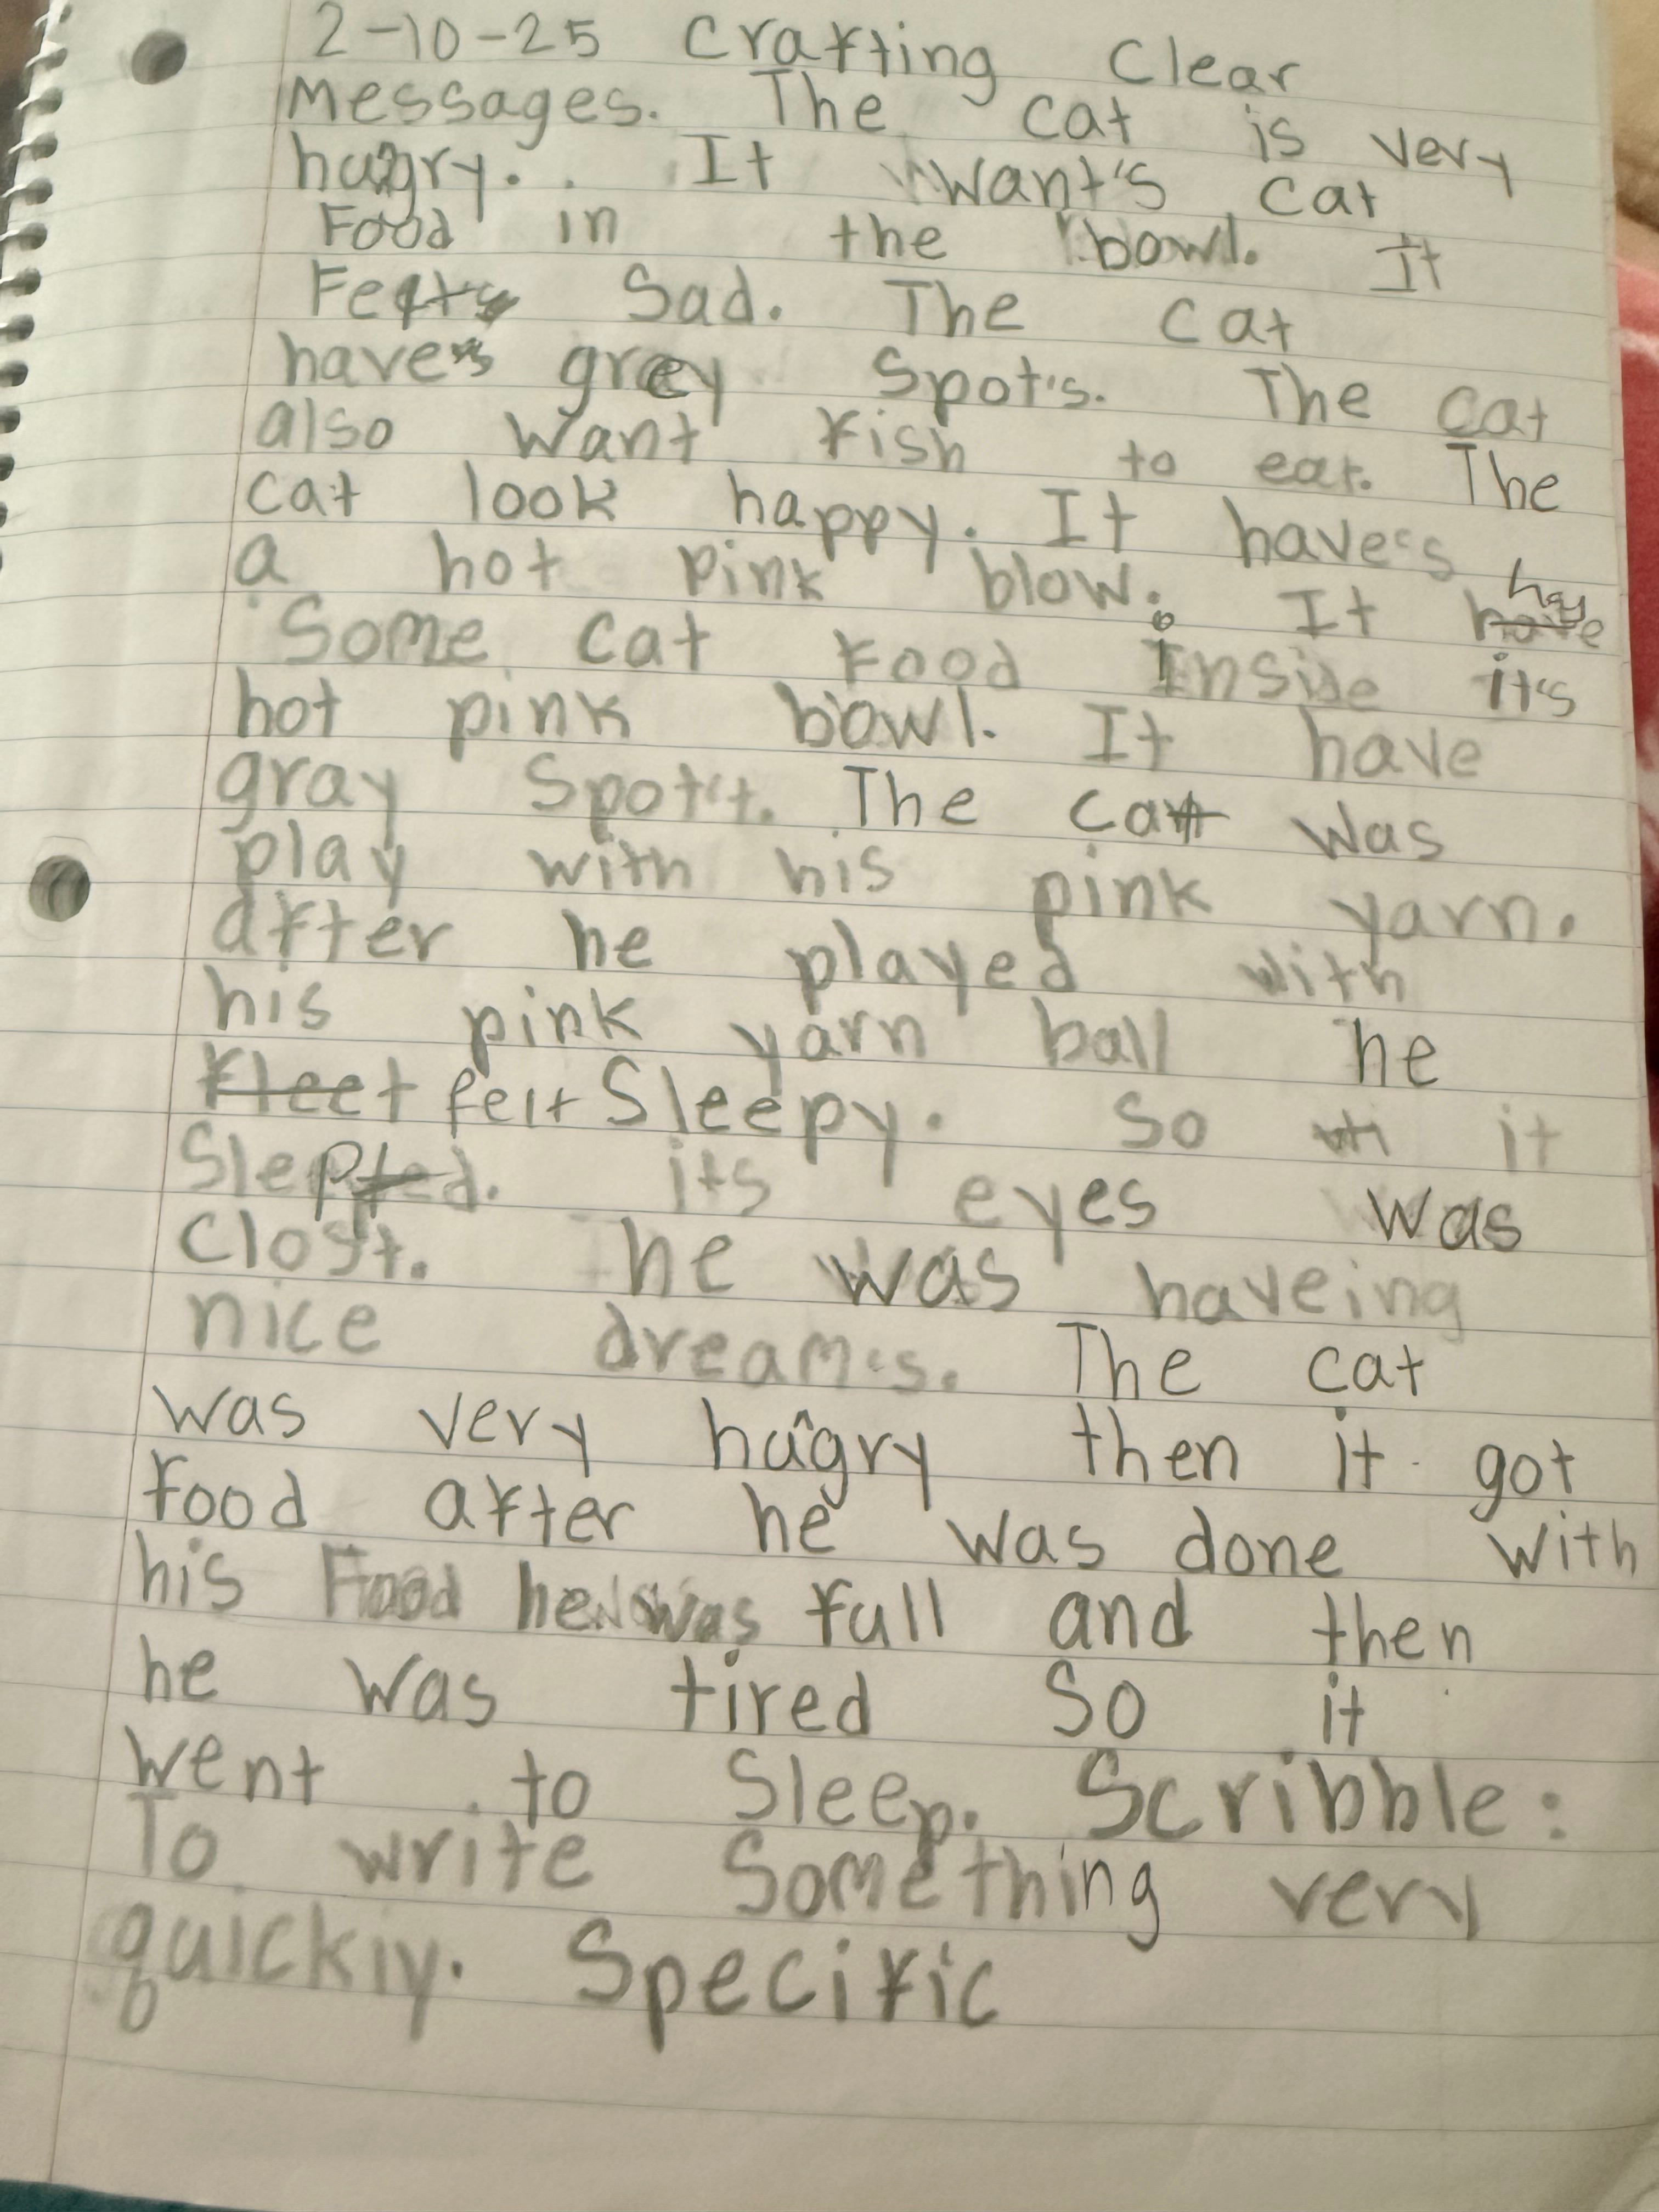 2-10-25 Crafting Clear
Messages. The cat is very
hungry. It want's cat
Food in the bowl. It
Felt Sad. The cat
have's grey Spot's. The cat
also want fish to eat. The
cat look happy. It have's
a hot pink blow. It has
Some cat food Inside it's
hot pink bowl. It have
gray Spot't. The cat was
play with his pink yarn.
after he played with
his pink yarn ball he
felt Sleepy. So it
Slept. its eyes was
Clost. he was haveing
nice dream's. The cat
was very hugry then it got
food after he was done with
his Food he was full and then
he was tired So it
went to Sleep. Scribble:
To write Something very
quickly. Specific